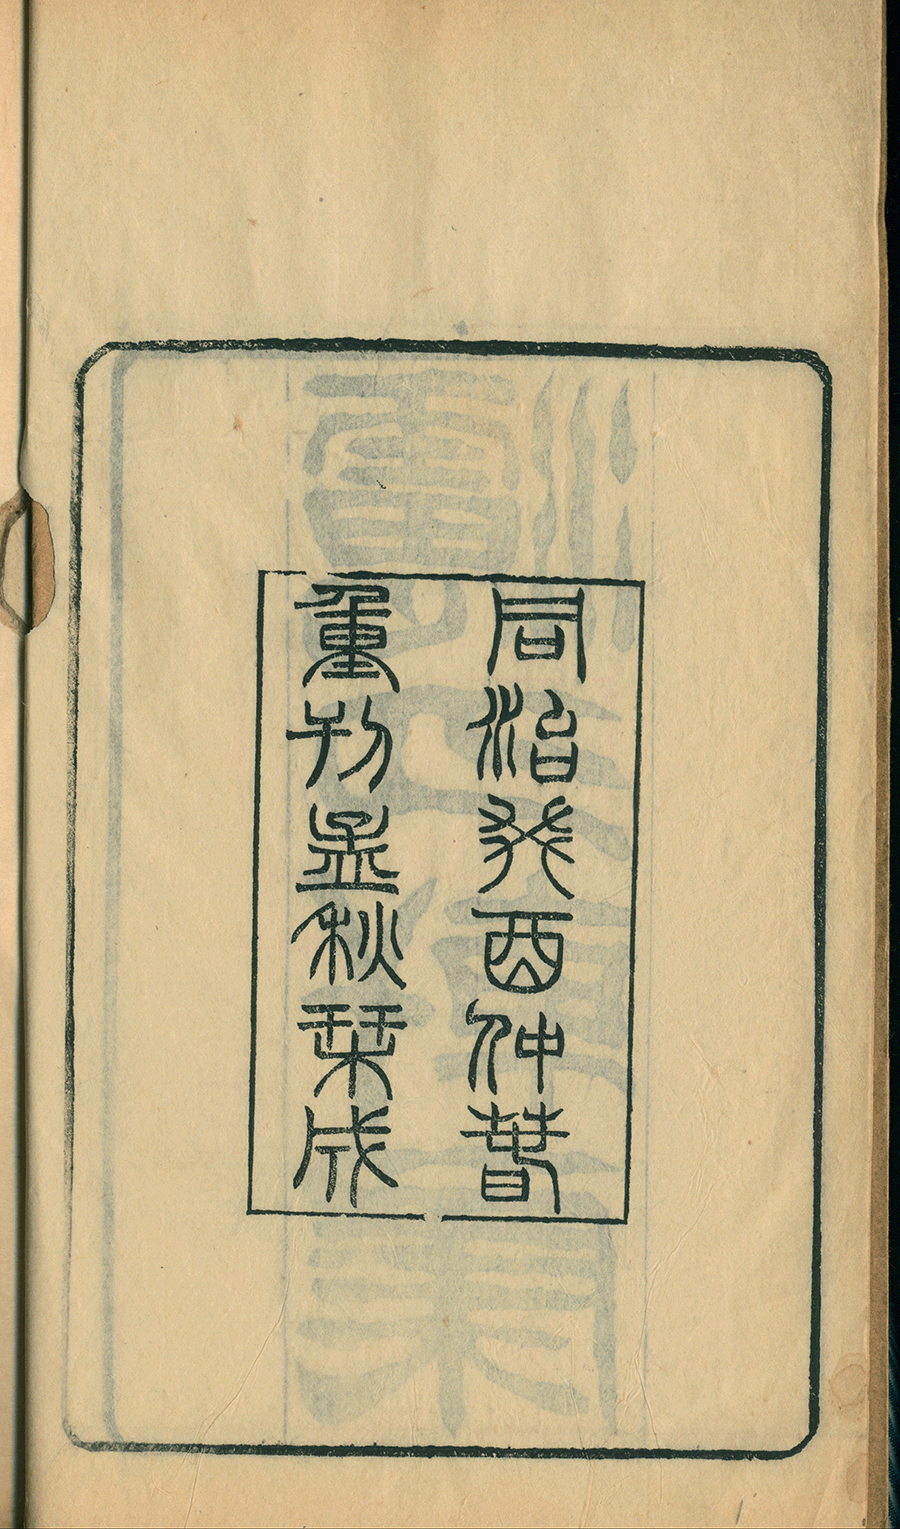 同治癸酉仲春
重刊孟秋栞成